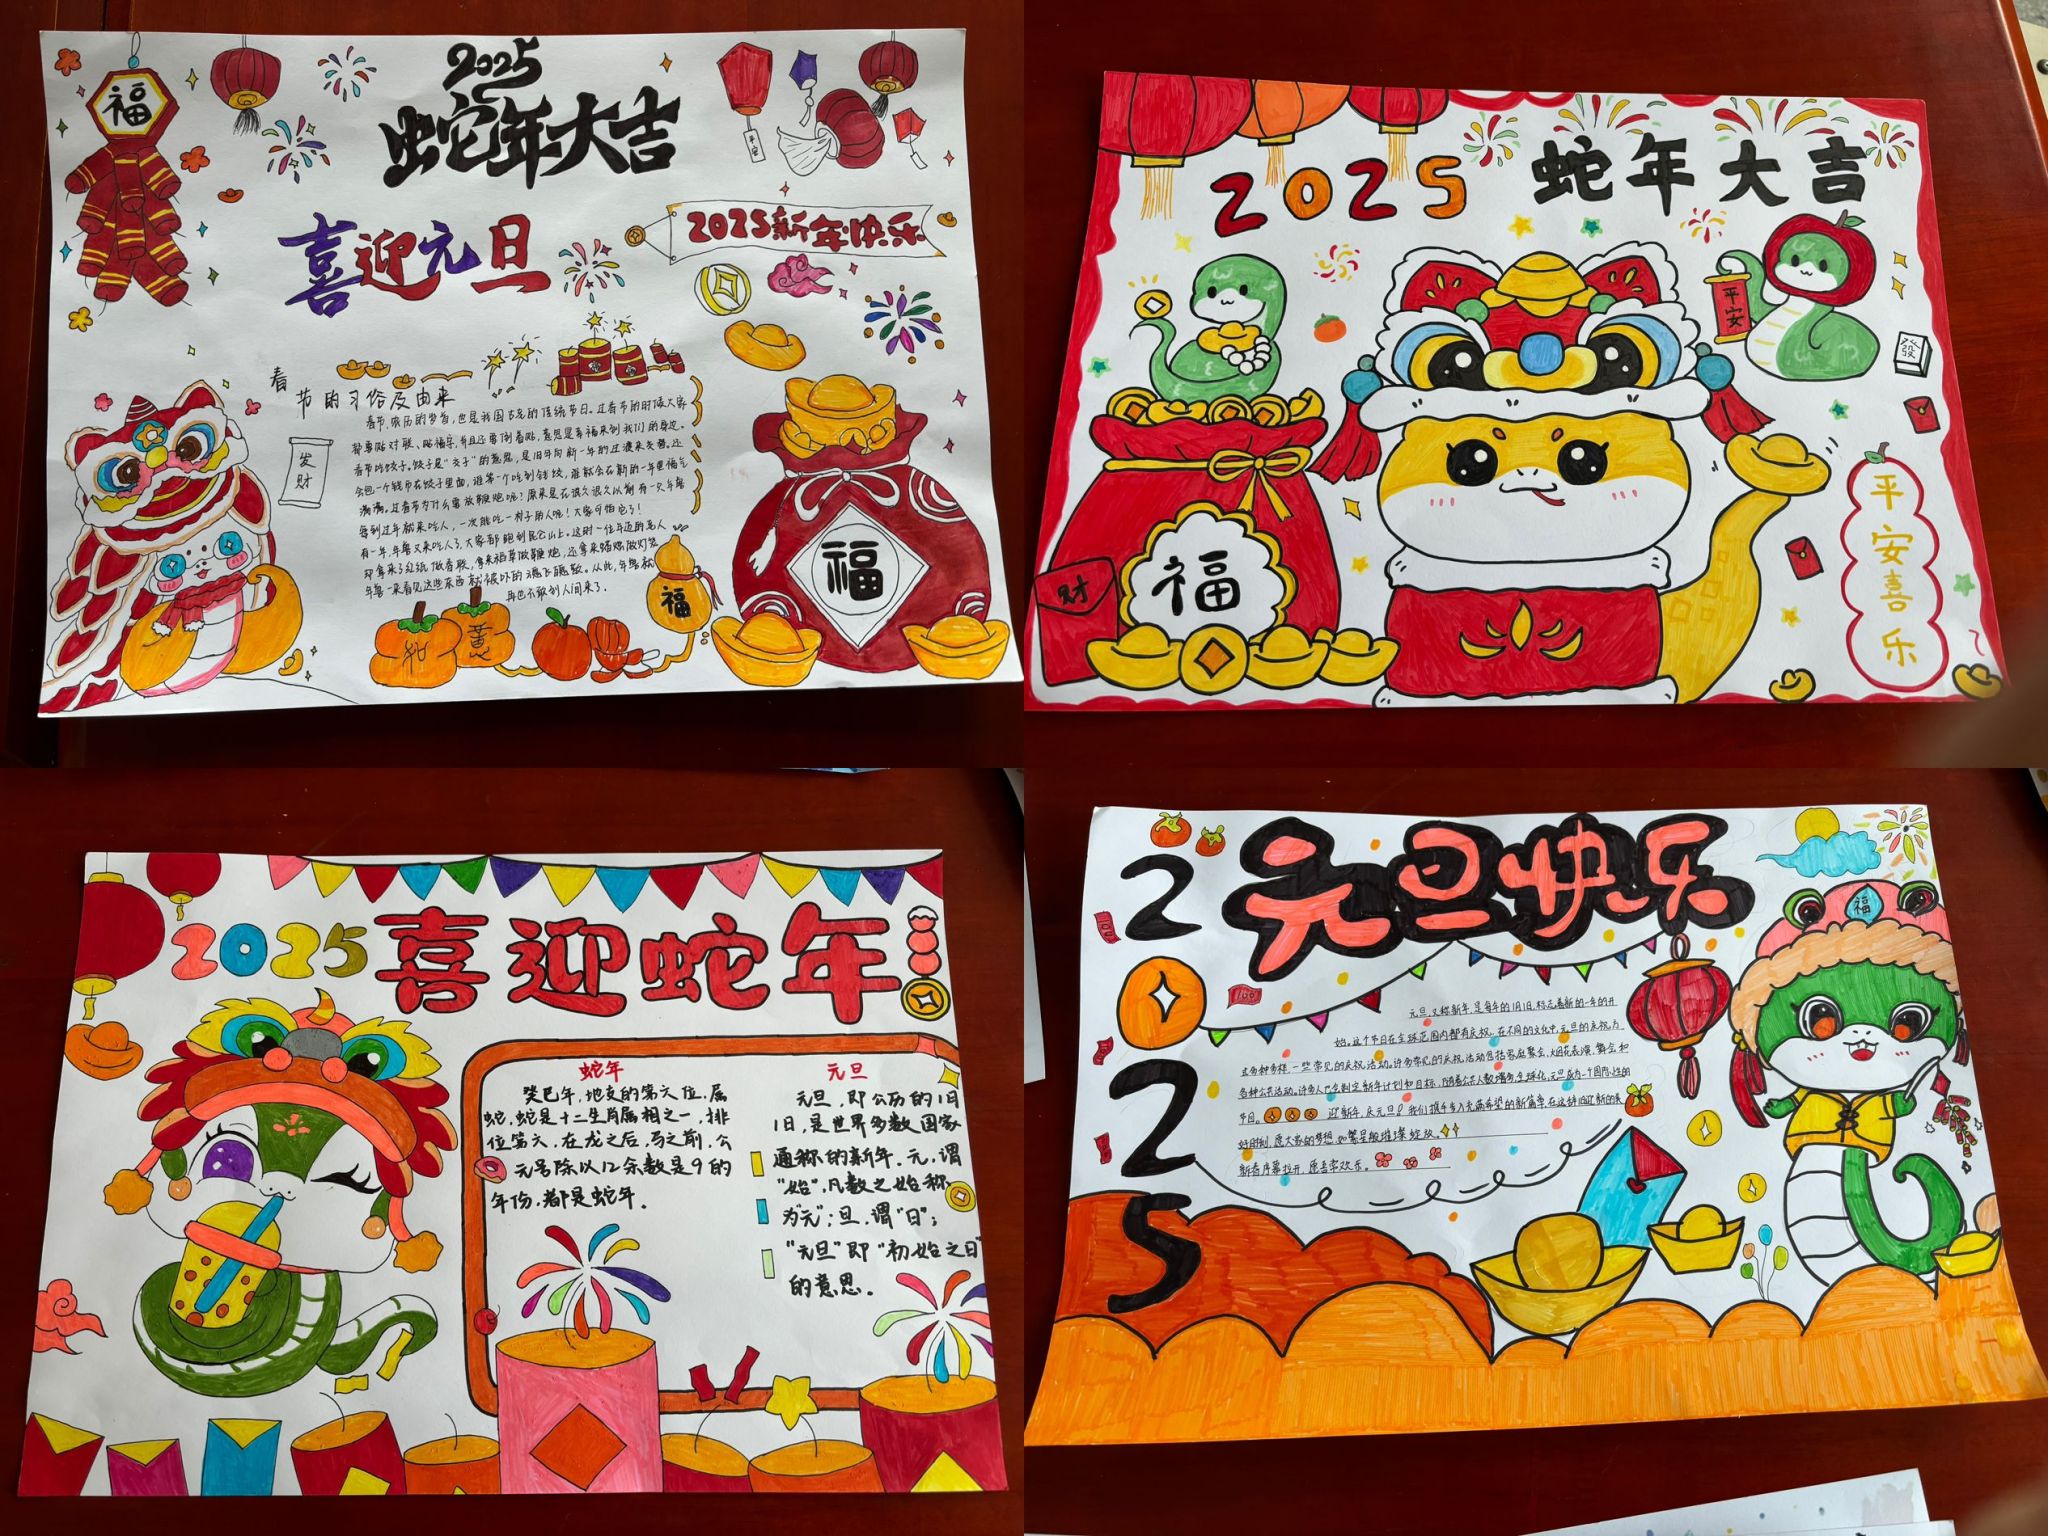 福
2025
蛇年大吉
平安
喜迎元旦
2025新年快乐
春节的习俗及由来
春节,农历的岁首,也是我国古老的传统节日。过春节的时候大家
都要贴对联、贴福字,并且还要倒着贴,意思是幸福来到我们的身边。
春节吃饺子。饺子是"交子"的意思,是旧年向新一年的过渡来交替。还
会包一个钱币在饺子里面,谁第一个吃到钱饺,谁就会在新的一年里福气
满满。过春节为什么要放鞭炮呢?原来是在很久很久以前有一只年兽
每到过年就来吃人,一次能吃一村子的人呢!大家可怕它了!
有一年,年兽又来吃人了,大家都跑到昆仑山上。这时一位年迈的老人
却拿来了红纸做春联,拿来稻草做鞭炮,还拿来蜡烛做灯笼
年兽一来看见这些东西就被吓的魂飞魄散。从此,年兽就
再也不敢到人间来了.
发财
福
福
2025
蛇年大吉
平安
發
福
财
平安喜乐
2025
喜迎蛇年
蛇年
癸巳年,地支的第六位,属
蛇,蛇是十二生肖属相之一,排
位第六,在龙之后,马之前,公
元号除以12余数是9的
年份,都是蛇年.
元旦
元旦,即公历的1月
1日,是世界多数国家
通称的新年.元,谓
"始",凡数之始称
为"元";旦,谓"日";
"元旦"即"初始之日"
的意思.
元旦快乐
2025
福
100
100
元旦,又称新年,是每年的1月1日,标志着新的一年的开
始。这个节日在全球范围内都有庆祝,在不同的文化中,元旦的庆祝方
式多种多样,一些常见的庆祝活动。许多常见的庆祝活动包括家庭聚会、烟花表演、舞会和
各种公共活动。许多人已会制定新年计划和目标,随着公共人数增多,全球化,元旦成为一个国际性的
节日。迎新年,庆元旦!我们携手步入充满希望的新篇章,在这辞旧迎新的美
好时刻,愿大家的梦想如繁星般璀璨绽放。
新春序幕拉开,愿喜常欢乐。